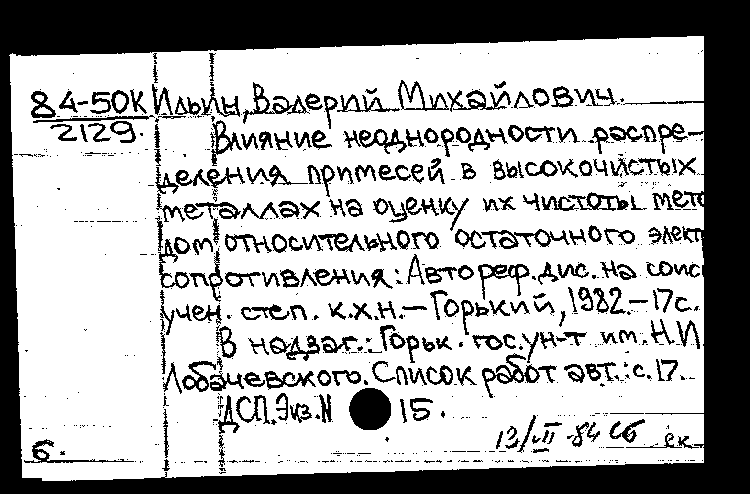 84-50К Ильин, Валерий Михайлович.
2129. Влияние неоднородности распре-
деления примесей в высокочистых
металлах на оценку их чистоты мето
дом относительного остаточного элект
сопротивления: Автореф. дис. на соиск
учен. степ. к.х.н. — Горький, 1982. — 17с.
В надзаг.: Горьк. гос. ун-т им. Н.И.
Лобачевского. Список работ авт.: с. 17.
ДСП. Экз. N 15.
13/II-84 Сб ек
б.